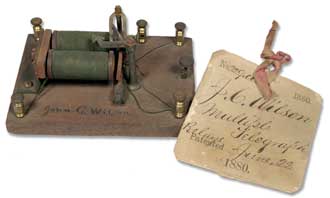 John C. Wilson
1880.
J. C. Wilson
Multiple
Telegraph
Patented June 22
1880.